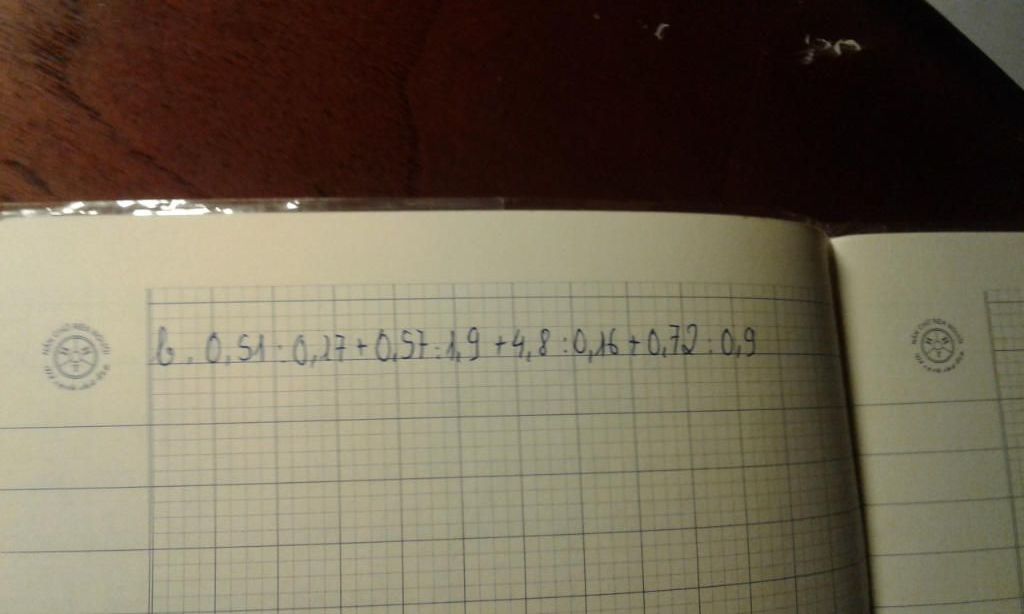 b. 0,51 : 0,17 + 0,57 : 1,9 + 4,8 : 0,16 + 0,72 : 0,9